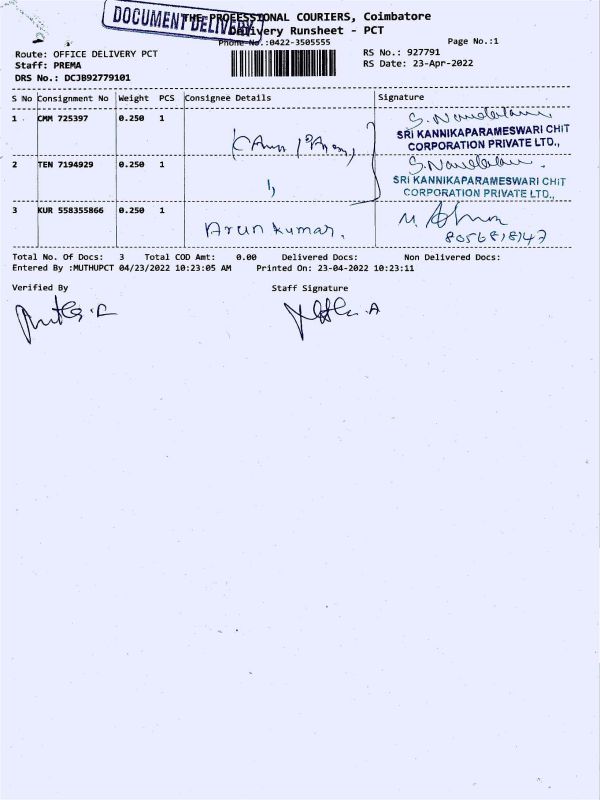 DOCUMENT DELIVERY
THE PROFESSIONAL COURIERS, Coimbatore
Delivery Runsheet - PCT
Phone No.:0422-3505555
Page No.:1
Route: OFFICE DELIVERY PCT
RS No.: 927791
Staff: PREMA
RS Date: 23-Apr-2022
DRS No.: DCJB92779101
S No Consignment No Weight PCS Consignee Details Signature
1 CMM 725397 0.250 1
SRI KANNIKAPARAMESWARI CHIT
CORPORATION PRIVATE LTD.,
2 TEN 7194929 0.250 1
SRI KANNIKAPARAMESWARI CHIT
CORPORATION PRIVATE LTD.,
3 KUR 558355866 0.250 1 Arun kumar.
Total No. Of Docs: 3 Total COD Amt: 0.00 Delivered Docs: Non Delivered Docs:
Entered By :MUTHUPCT 04/23/2022 10:23:05 AM Printed On: 23-04-2022 10:23:11
Verified By Staff Signature